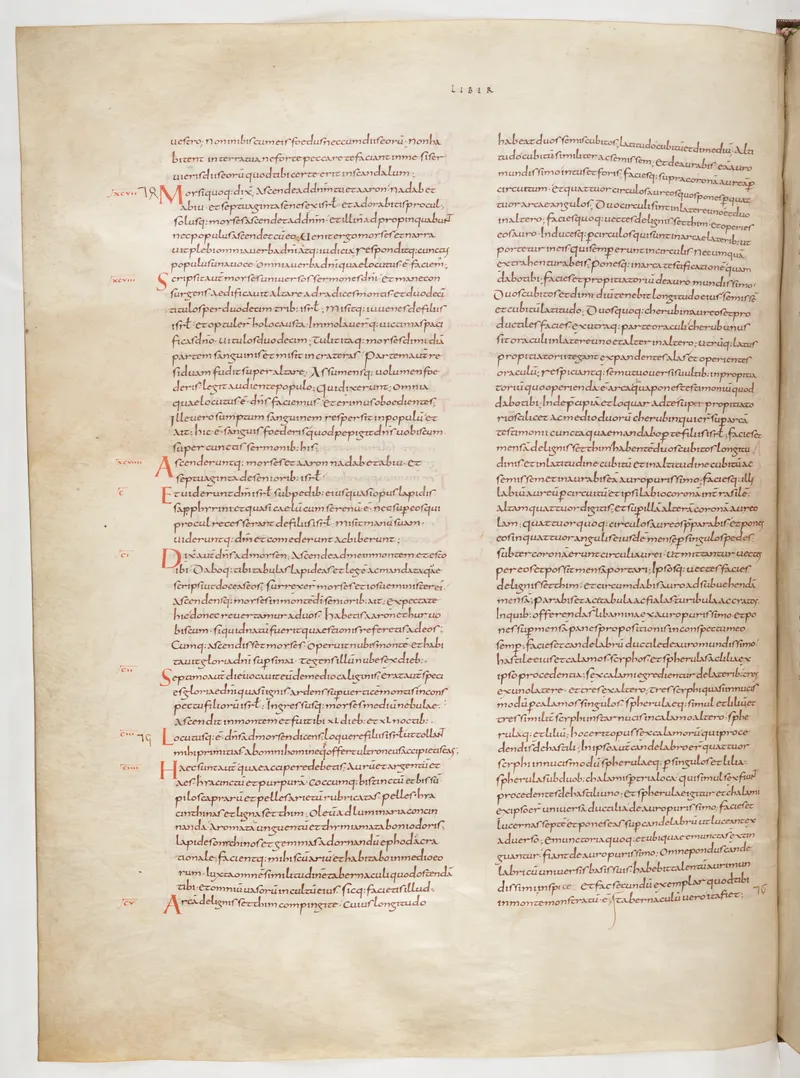 LIBER
uestro; non inibis cum eis foedus nec cum diis eorū; non ha
bitent in terra tua ne forte peccare te faciant in me si ser
uieris diis eorū quod tibi certe erit in scandalum;
Moysi quoq: dix̄; Ascende ad dn̄m tu et aaron nadab et
abiu et septuaginta senes ex isrł et adorabitis procul;
solusq: moyses ascendet ad dn̄m et illi n̄ adpropinquabunt
nec populus ascendet cū eo; Uenit ergo moyses et narra
uit plebi omnia uerba dn̄i atq: iudicia; responditq: cunctus
populus una uoce omnia uerba dn̄i quae locutus ē faciem;
Scripsit aut̄ moyses uniuersos sermones dn̄i et mane con
surgens aedificauit altare ad radices montis et duodeci
titulos per duodecim trib: isrł; Misitq: iuuenes de filiis
isrł et optuler holocausta; Immolauer q: uictimas paci
ficas dn̄o uitulos duodecim; Tulit itaq: moyses dimidiā
partem sanguinis et misit in crateras; Partem aut̄ re
siduam fudit super altare; Assumensq: uolumen foe
deris legit audiente populo; Qui dixerunt; Omnia
quae locutus ē dn̄s faciemus et erimus oboedientes;
Ille uero sumptum sanguinem respersit in populū et
ait; hic ē sanguis foederis quod pepigit dn̄s uobiscum
super cunctis sermonib: his;
Ascenderuntq: moyses et aaron nadab et abiu et
septuaginta de seniorib: isrł
Et uiderunt dm̄ isrł sub pedib: eius quasi opus lapidis
sapphyrini et quasi caelū cum serenū ē nec super eos qui
procul recesserant de filiis isrł misit manū suam;
uideruntq: dm̄ et comederunt ac biberunt;
Dixit aut̄ dn̄s ad moysen; Ascende ad me in montem et esto
ibi; Daboq: tibi tabulas lapideas et legē ac mandata quae
scripsi ut doceas eos; surrexer moyses et iosue minister ei;
Ascendensq: moyses in monte di senioribus ait; expectate
hic donec reuertamur ad uos; habetis aaron et hur uo
biscum; siquid natū fuerit quaestionis referetis ad eos;
Cumq: ascendisset moyses; operuit nubis monte et habi
tauit gloria dn̄i sup sinai tegens illū nube sex dieb:;
Septimo aut̄ die uocauit eū de medio caliginis; erat aut̄ speci
es gloriae dn̄i quasi ignis ardens super uerticē montis in cons
pectu filiorū isrł; Ingressusq: moyses mediū nebulae
Ascendit in montem et fuit ibi xl dieb: et xl noctib:;
Locutusq: ē dn̄s ad moysen dicens; loquere filiis isrł ut tollant
mihi primitias ab omni homine q̄ offert ultroneus accipietis eas;
Haec sunt aut̄ quae accipere debeatis; Aurū et argentū et
aes hyacinctū et purpurā coccumq: bis tinctū et byssū
pilos caprarū et pelles arietū rubricatas pelles hya
cinthinas et ligna setthim; Oleū ad luminaria concin
nanda; Aromata in unguentū et thymiamata boni odoris;
lapides onychinos et gemmas ad ornandū ephod ac ra
tionale; facientq: mihi sc̄uariū et habitabo in medio eo
rum; Iuxta omnē similitudinē tabernaculi quod ostenda
tibi et omniū uasorū in cultū eius; sicq: facietis illud;
Arcā de lignis setthim compingite; Cuius longitudo
habeat duos semis cubitos; latitudo cubitū et dimediū; Alti
tudo cubitū similiter ac semissem; et deaurabis eā auro
mundissimo intus et foris; faciesq: supra coronā aureā p
circuitum et quattuor circulos aureos quos pones p quat
tuor arcae angulos; Duo circuli sint in latere uno et duo
in altero; faciesq: uectes de lignis setthim et operies
eos auro; Inducesq: p circulos qui sunt in arcae laterib: ut
portetur in eis qui semper erunt in circulis nec umquā
extrahentur ab eis; ponesq: in arca testificationē quam
dabo tibi; facies et propitiatoriū de auro mundissimo;
Duos cubitos et dimidiū tenebit longitudo eius semisse
et cubitū latitudo; Duos quoq: cherubin aureos et pro
ductales facies ex utraq: parte oraculi; cherub unus
sit oraculi in latere uno et alter in altero; utrūq: latus
propitiatorii tegant expandentes alas et operientes
oraculū; respiciantq: se mutuo uersis uultib: in propitia
toriū quo operienda ē arca; in qua pones testimoniū quod
dabo tibi; Inde p̄cipiā et loquar ad te super propitiato
rio; scilicet ac medio duorū cherubin qui er sup arcā
testimonii cuncta quae mandabo p te filiis isrł; facies et
mensā de lignis setthim habentē duos cubitos longitu
dinis et in latitudine cubitū et in altitudine cubitū ac
semissem et inaurabis eā auro purissimo; faciesq: illi
labiū aureū p circuitū et ipsi labio coronā interrasile
altam quattuor digitis et sup illā alterā coronā aureo
lam; quattuor quoq: circulos aureos p̄parabis et pones
eos in quattuor angulis eiusdē mensę p singulos pedes;
subter coronā erunt circuli aurei; ut mittantur uectes
per eos et possit mensa portari; Ipsosq: uectes facies
de lignis setthim et circumdabis auro ad subuehendā
mensā; parabis et acetabula ac fialas turibula ac cyatos;
In quib: offerenda s̄ libamina ex auro purissimo; et po
nes sup mensā panes propositionis in conspectu meo
semp; facies et candelabrū ductile de auro mundissimo
hastile eius et calamos scyphos et spherulas ac lilia ex
ipso procedentia; sex calami egredientur de laterib: tres
ex uno latere et tres ex altero; tres scyphi quasi in nucis
modū p calamos singulos spherulaeq: simul et liliū et
tres similiter scyphi instar nucis in calamo altero; sphe
rulaq: et liliū; hoc erit opus sex calamorū qui proce
dendi s̄ de hastili; In ipso aut̄ candelabro er quattuor
scyphi in nucis modū spherulaeq: p singulos et lilia;
spherula sub duob: chalamis per tria loca qui simul sex fiunt
procedentes de hastili uno; et spherulae igitur et chalami
ex ipso er uniuersa ductilia de auro purissimo; facies et
lucernas septē et pones eas sup candelabrū ut luceant ex
aduerso; emunctoria quoq: et ubi quae emuncta s̄ extin
guantur fiant de auro purissimo; Omne pondus cande
labri cū uniuersis uasis suis habebit talentū auri mun
dissimi; Inspice et fac secundū exemplar quod tibi
in monte monstratū ē; Tabernaculū uero ita fiet;